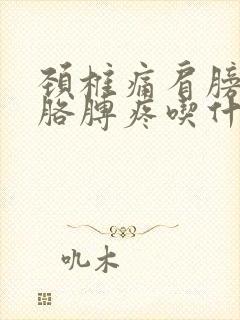 颈椎痛肩膀
胳脾疼喫什
吼木